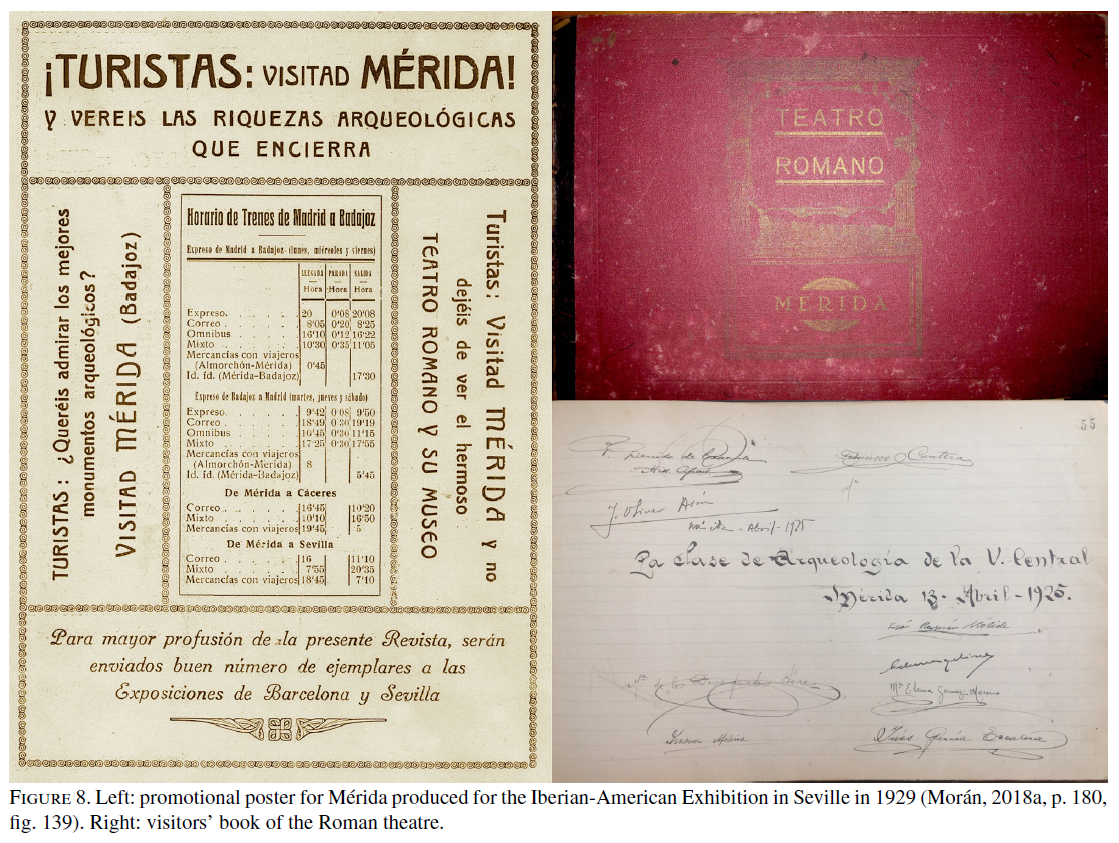 ¡TURISTAS: VISITAD MÉRIDA!
Y VEREIS LAS RIQUEZAS ARQUEOLÓGICAS
QUE ENCIERRA
TURISTAS: ¿Queréis admirar los mejores
monumentos arqueológicos?
VISITAD MÉRIDA (Badajoz)
Horario de Trenes de Madrid a Badajoz
Expreso de Madrid a Badajoz (lunes, miércoles y viernes)
LLEGADA PARADA SALIDA
Hora Hora Hora
Expreso. 20 0'08 20'08
Correo 8'05 0'20 8'25
Omnibus 16'10 0'12 16'22
Mixto 10'30 0'35 11'05
Mercancías con viajeros
(Almorchón-Mérida) 0'45
Id. íd. (Mérida-Badajoz) 17'30
Expreso de Badajoz a Madrid (martes, jueves y sábado)
Expreso. 9'42 0'08 9'50
Correo 18'49 0'30 19'19
Omnibus 10'45 0'30 11'15
Mixto 17'25 0'30 17'55
Mercancías con viajeros
(Almorchón-Merida) 8
Id. íd. (Mérida-Badajoz) 5'45
De Mérida a Cáceres
Correo 16'45 10'20
Mixto 10'10 16'50
Mercancías con viajeros 19'45 5
De Mérida a Sevilla
Correo 16 11'10
Mixto 7'55 20'35
Mercancías con viajeros 18'45 7'10
Turistas: Visitad MÉRIDA y no
dejéis de ver el hermoso
TEATRO ROMANO Y SU MUSEO
Para mayor profusión de la presente Revista, serán
enviados buen número de ejemplares a las
Exposiciones de Barcelona y Sevilla
TEATRO
ROMANO
MERIDA
55
Francisco Cantera
J. Oliver Asín
Abril-1925
La Clase de Arqueología de la V. Central
Mérida 13-Abril-1925.
José Ramón Mélida
Mª Elena Gómez-Moreno
Inés García Escalera
FIGURE 8. Left: promotional poster for Mérida produced for the Iberian-American Exhibition in Seville in 1929 (Morán, 2018a, p. 180,
fig. 139). Right: visitors' book of the Roman theatre.